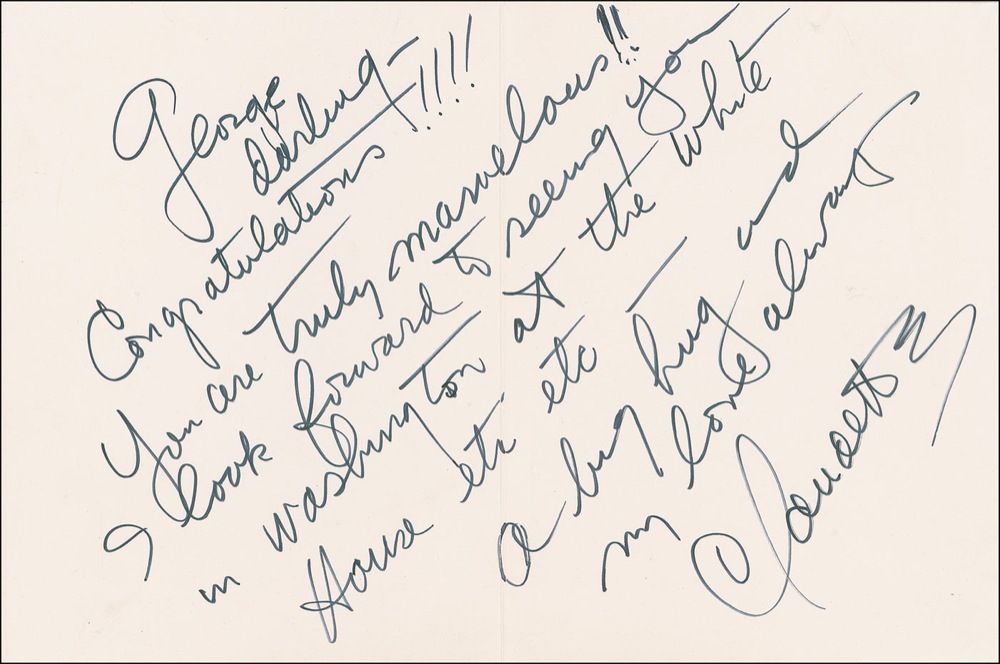 George
darling -
Congratulations !!!!
You are truly marvelous!!
I look forward to seeing you
in Washington at the White
House etc etc
a big hug and
my love always
Claudette